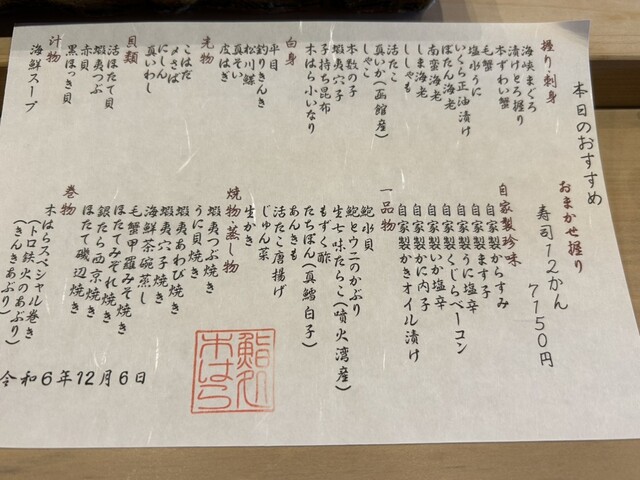 本日のおすすめ
おまかせ握り
寿司12かん
7150円
握り・刺身
海峡まぐろ
漬けとろ握り
本ずわい蟹
毛蟹
塩水うに
いくら正油漬け
ぼたん海老
南蛮海老
しま海老
ししゃも
しゃこ
活たこ
真いか(函館産)
本数の子
蝦夷穴子
子持ち昆布
木はら小いなり
白身
平目
釣りきんき
松川鰈
真ぞい
皮はぎ
光物
こはだ
〆さば
にしん
真いわし
貝類
活ほたて貝
蝦夷つぶ
赤貝
黒ほっき貝
汁物
海鮮スープ
自家製珍味
自家製からすみ
自家製ます子
自家製うに塩辛
自家製くじらベーコン
自家製いか塩辛
自家製かに内子
自家製かきオイル漬け
一品物
鮑水貝
鮑とウニのかぶり
生七味たらこ(噴火湾産)
もずく酢
たちぽん(真鱈白子)
あんきも
活たこ唐揚げ
じゅん菜
生かき
焼物・蒸し物
蝦夷つぶ焼き
うに貝焼き
蝦夷あわび焼き
蝦夷穴子焼き
海鮮茶碗蒸し
毛蟹甲羅みそ焼き
ほたてみぞれ焼き
銀たら西京焼き
ほたて磯辺焼き
巻物
木はらスペシャル巻き
(トロ鉄火のあぶり)
(きんきあぶり)
令和6年12月6日
鮨処
木はら